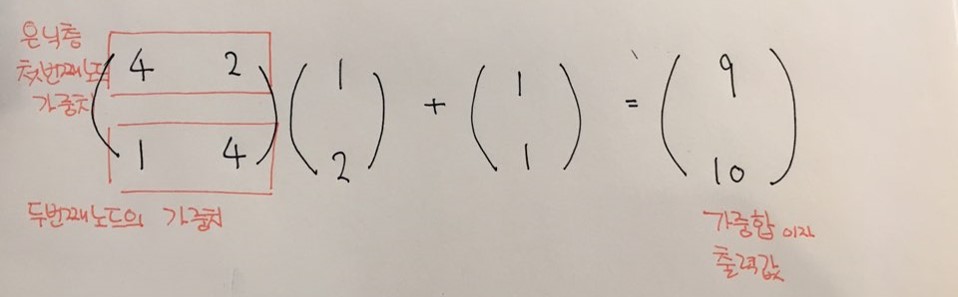 은닉층
첫번째노드
가중치
4 2 1 1 9
+ =
1 4 2 1 10
두번째노드의 가중치
가중합 이자
출력값